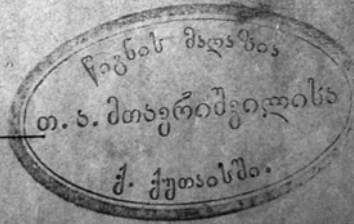 წიგნის მაღაზია
თ. ა. მთავრიშვილისა
ქ. ქუთაისში.